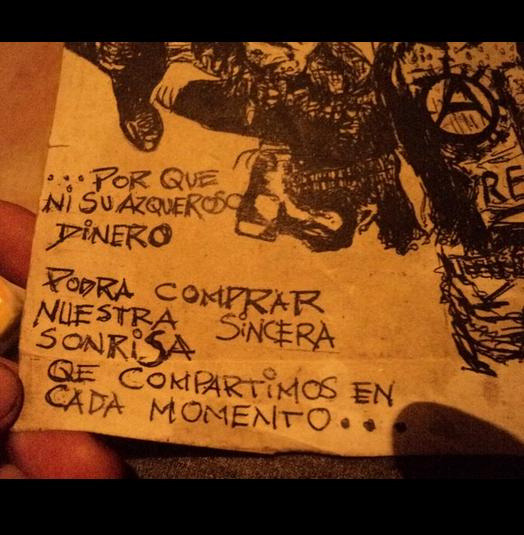 ...POR QUE
NI SU AZQUEROSO
DINERO
PODRA COMPRAR
NUESTRA SINCERA
SONRISA
QE COMPARTIMOS EN
CADA MOMENTO...
A
RE